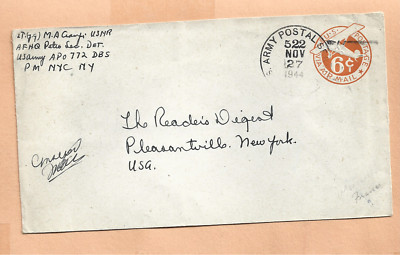 Lt(jg) M.A. USNR
AFHQ Petro Sec. Det.
US Army APO 772 DBS
P M NYC NY
U.S. ARMY POSTAL S
522
NOV
27
1944
U.S. POSTAGE
6¢
VIA AIR MAIL
The Reader's Digest
Pleasantville. New York.
USA.
France